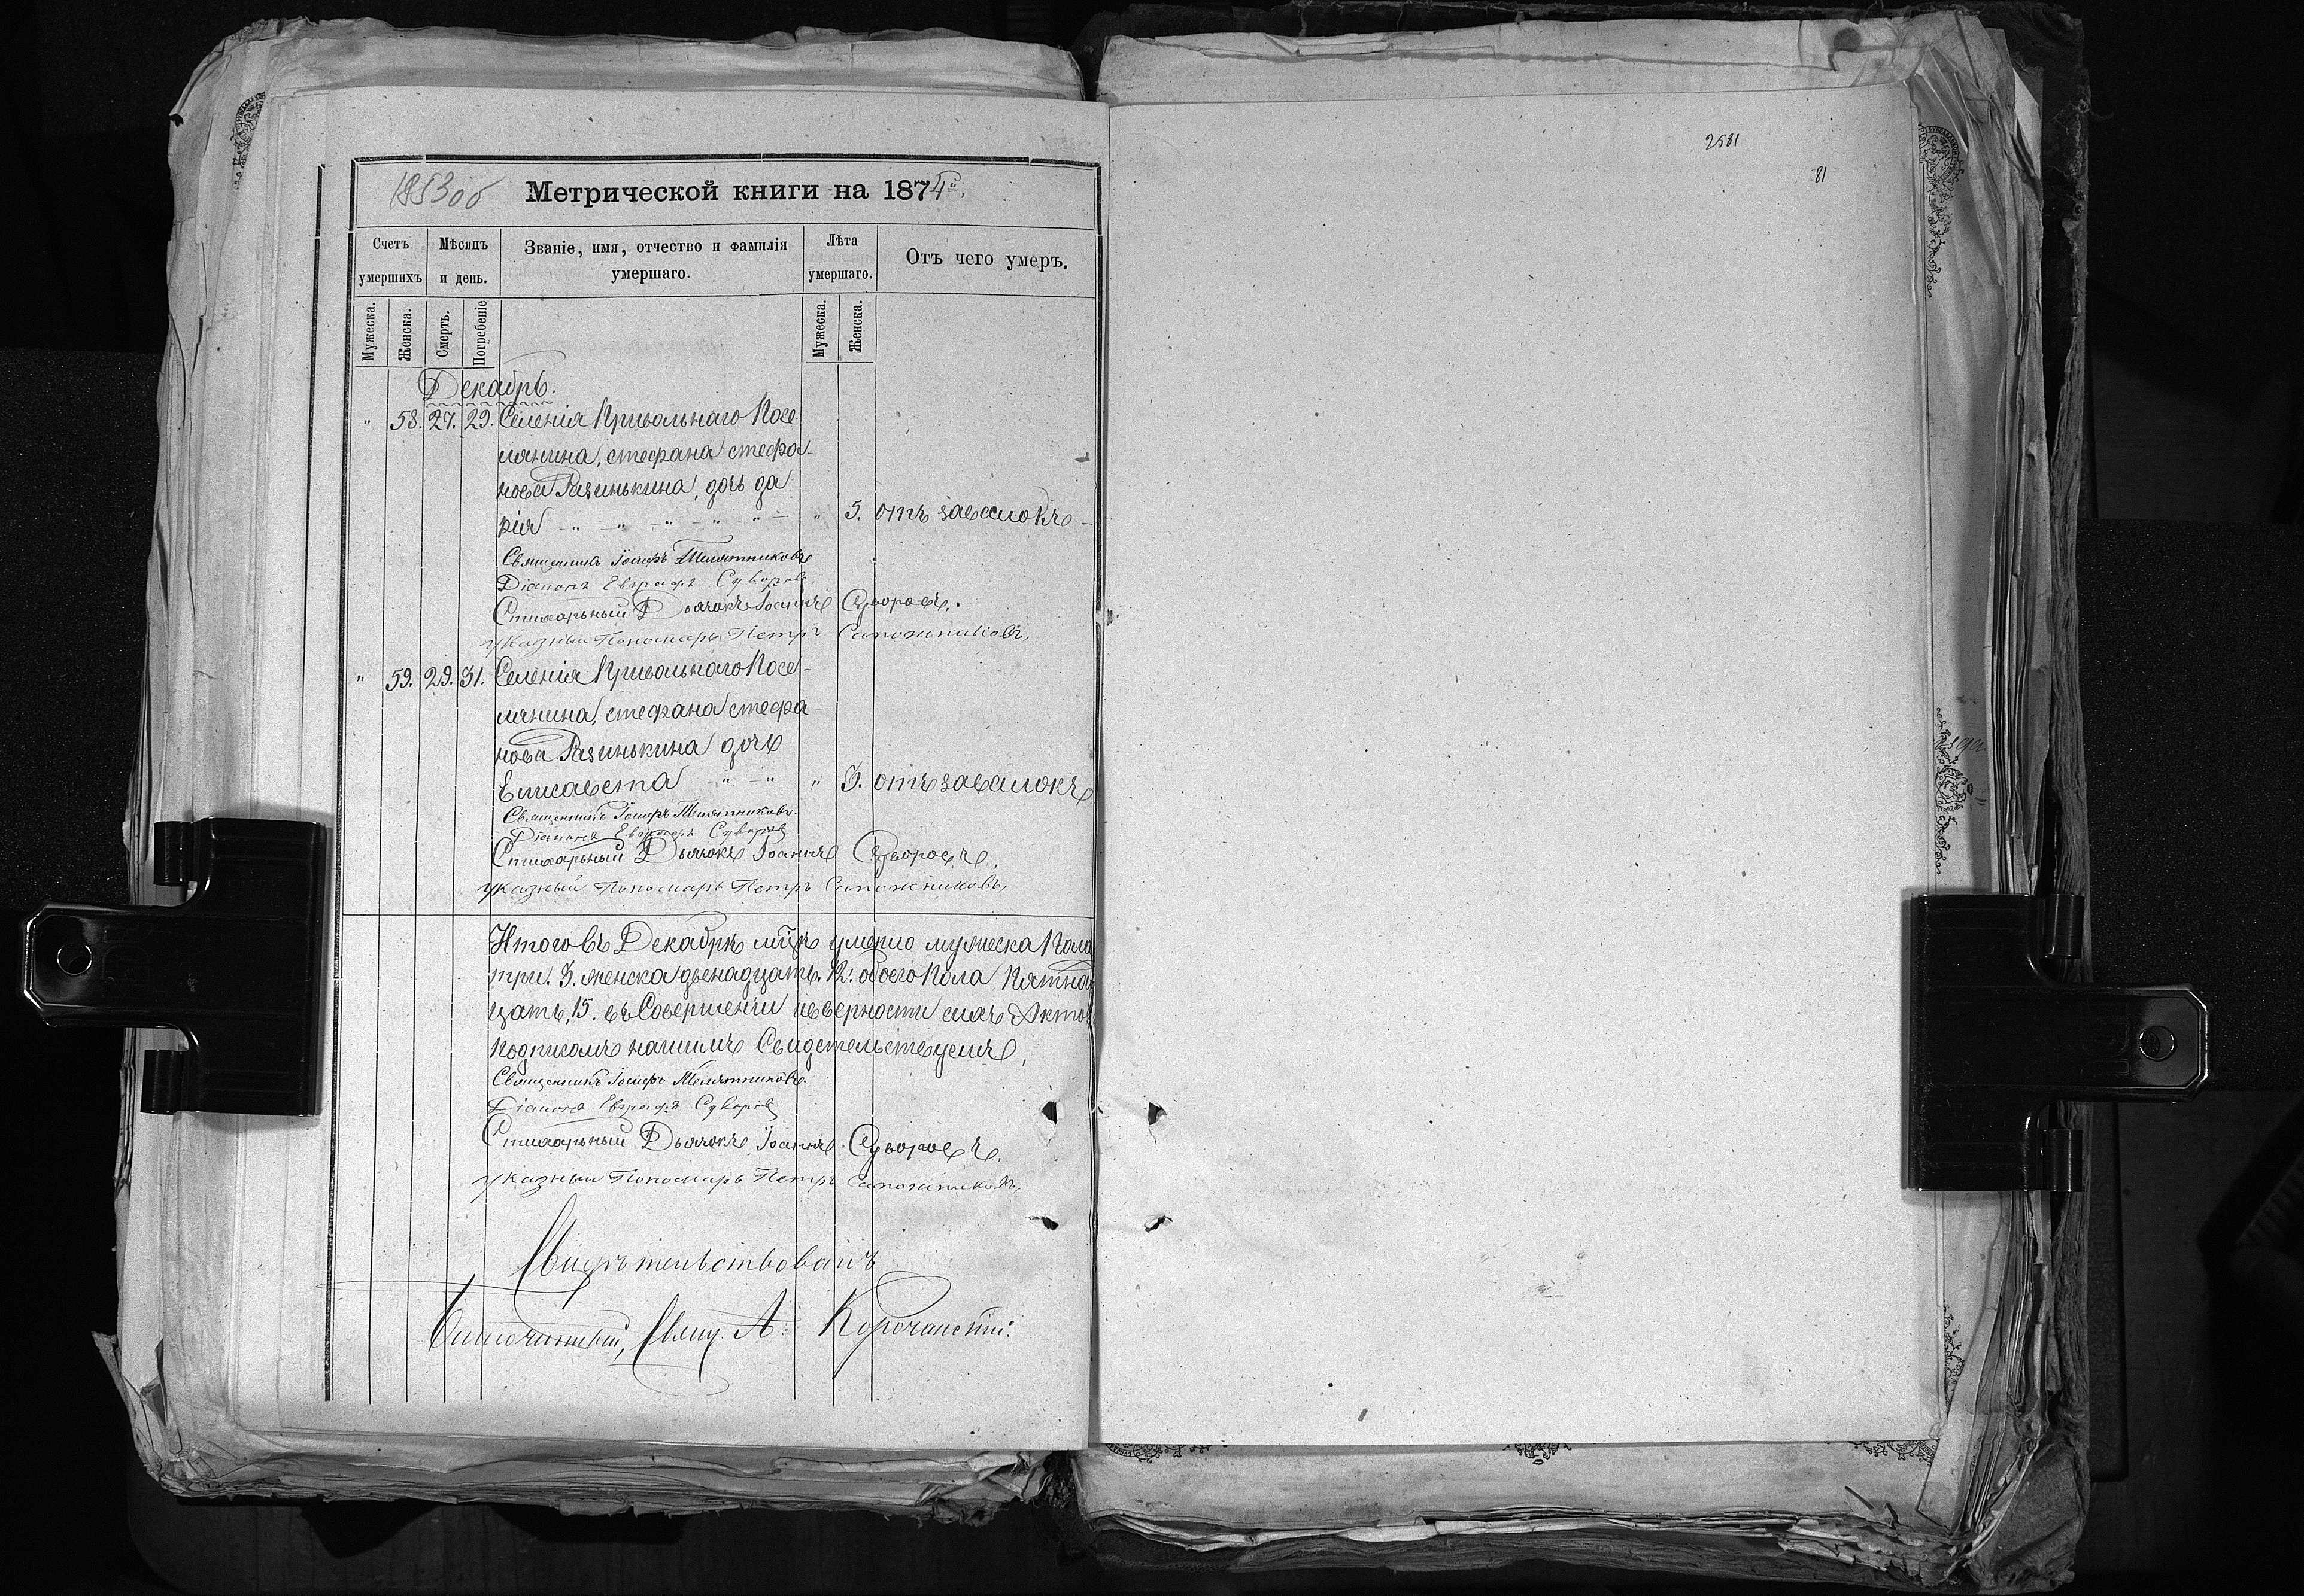 1853 об
Метрической книги на 1874й.
Счетъ умершихъ
Мѣсяцъ и день.
Званіе, имя, отчество и фамилія умершаго.
Лѣта умершаго.
Отъ чего умеръ.
Мужеска.
Женска.
Смерть.
Погребеніе
Мужеска.
Женска.
Декабрь.
" 58. 27. 29. Селенія Привольнаго Посе
лянина, Стефана Стефа-
нова Разинькина, дочь Да
рія " " " " " " 5. отъ завалокъ
Священникъ Іосифъ Телятниковъ
Діаконъ Евграфъ Суворовъ
Стихарный Дьячокъ Іоаннъ Суворовъ.
Указный Пономарь Петръ Сапожниковъ,
" 59. 29. 31. Селенія Привольнаго Посе-
лянина, Стефана Стефа
нова Разинькина дочь
Елисавета " " " 3. отъ завалокъ
Священникъ Іосифъ Телятниковъ
Діаконъ Евграфъ Суворовъ
Стихарный Дьячокъ Іоаннъ Суворовъ,
Указный Пономарь Петръ Сапожниковъ,
Итого въ Декабрѣ мцѣ умерло мужеска пола
три. 3. женска двенадцать. 12. обоего пола пятнад
цать, 15. въ Совершеніи и верности сихъ Актов
подписомъ нашимъ Свидетельствуемъ,
Священникъ Іосифъ Телятниковъ
Діаконъ Евграфъ Суворовъ
Стихарный Дьячокъ Іоаннъ Суворовъ,
Указный Пономарь Петръ Сапожниковъ,
Свидѣтельствовалъ
Благочинный, Свящ. А. Корочанскій.
2581
81